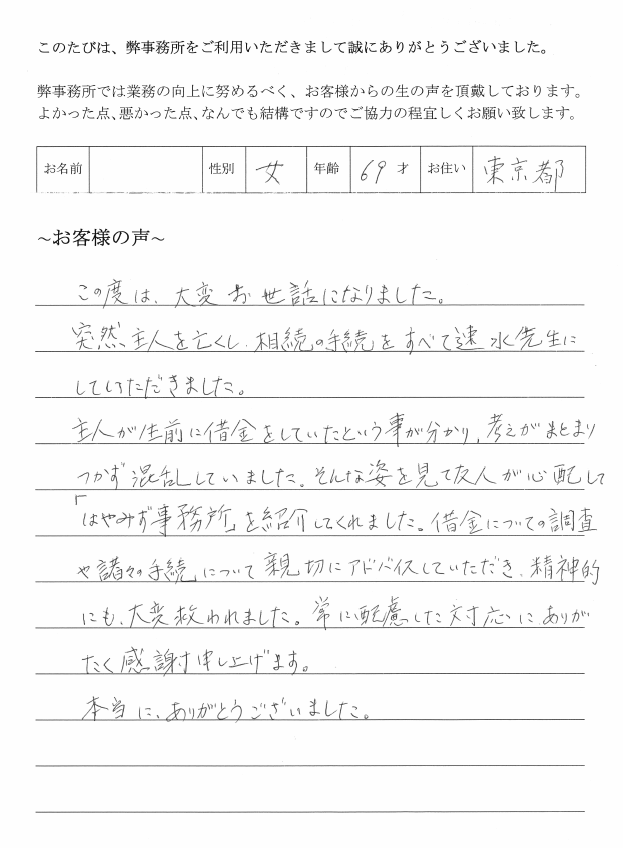 このたびは、弊事務所をご利用いただきまして誠にありがとうございました。
弊事務所では業務の向上に努めるべく、お客様からの生の声を頂戴しております。
よかった点、悪かった点、なんでも結構ですのでご協力の程宜しくお願い致します。
お名前 性別 女 年齢 69才 お住い 東京都
~お客様の声~
この度は、大変お世話になりました。
突然主人を亡くし、相続の手続をすべて速水先生に
してしいただきました。
主人が生前に借金をしていたという事が分かり、考えがまとまり
つかず混乱していました。そんな姿を見て友人が心配して
「はやみず事務所」を紹介してくれました。借金についての調査
や諸々の手続について親切にアドバイスしていただき、精神的
にも、大変救われました。常に配慮した対応にありが
たく感謝申し上げます。
本当に、ありがとうございました。